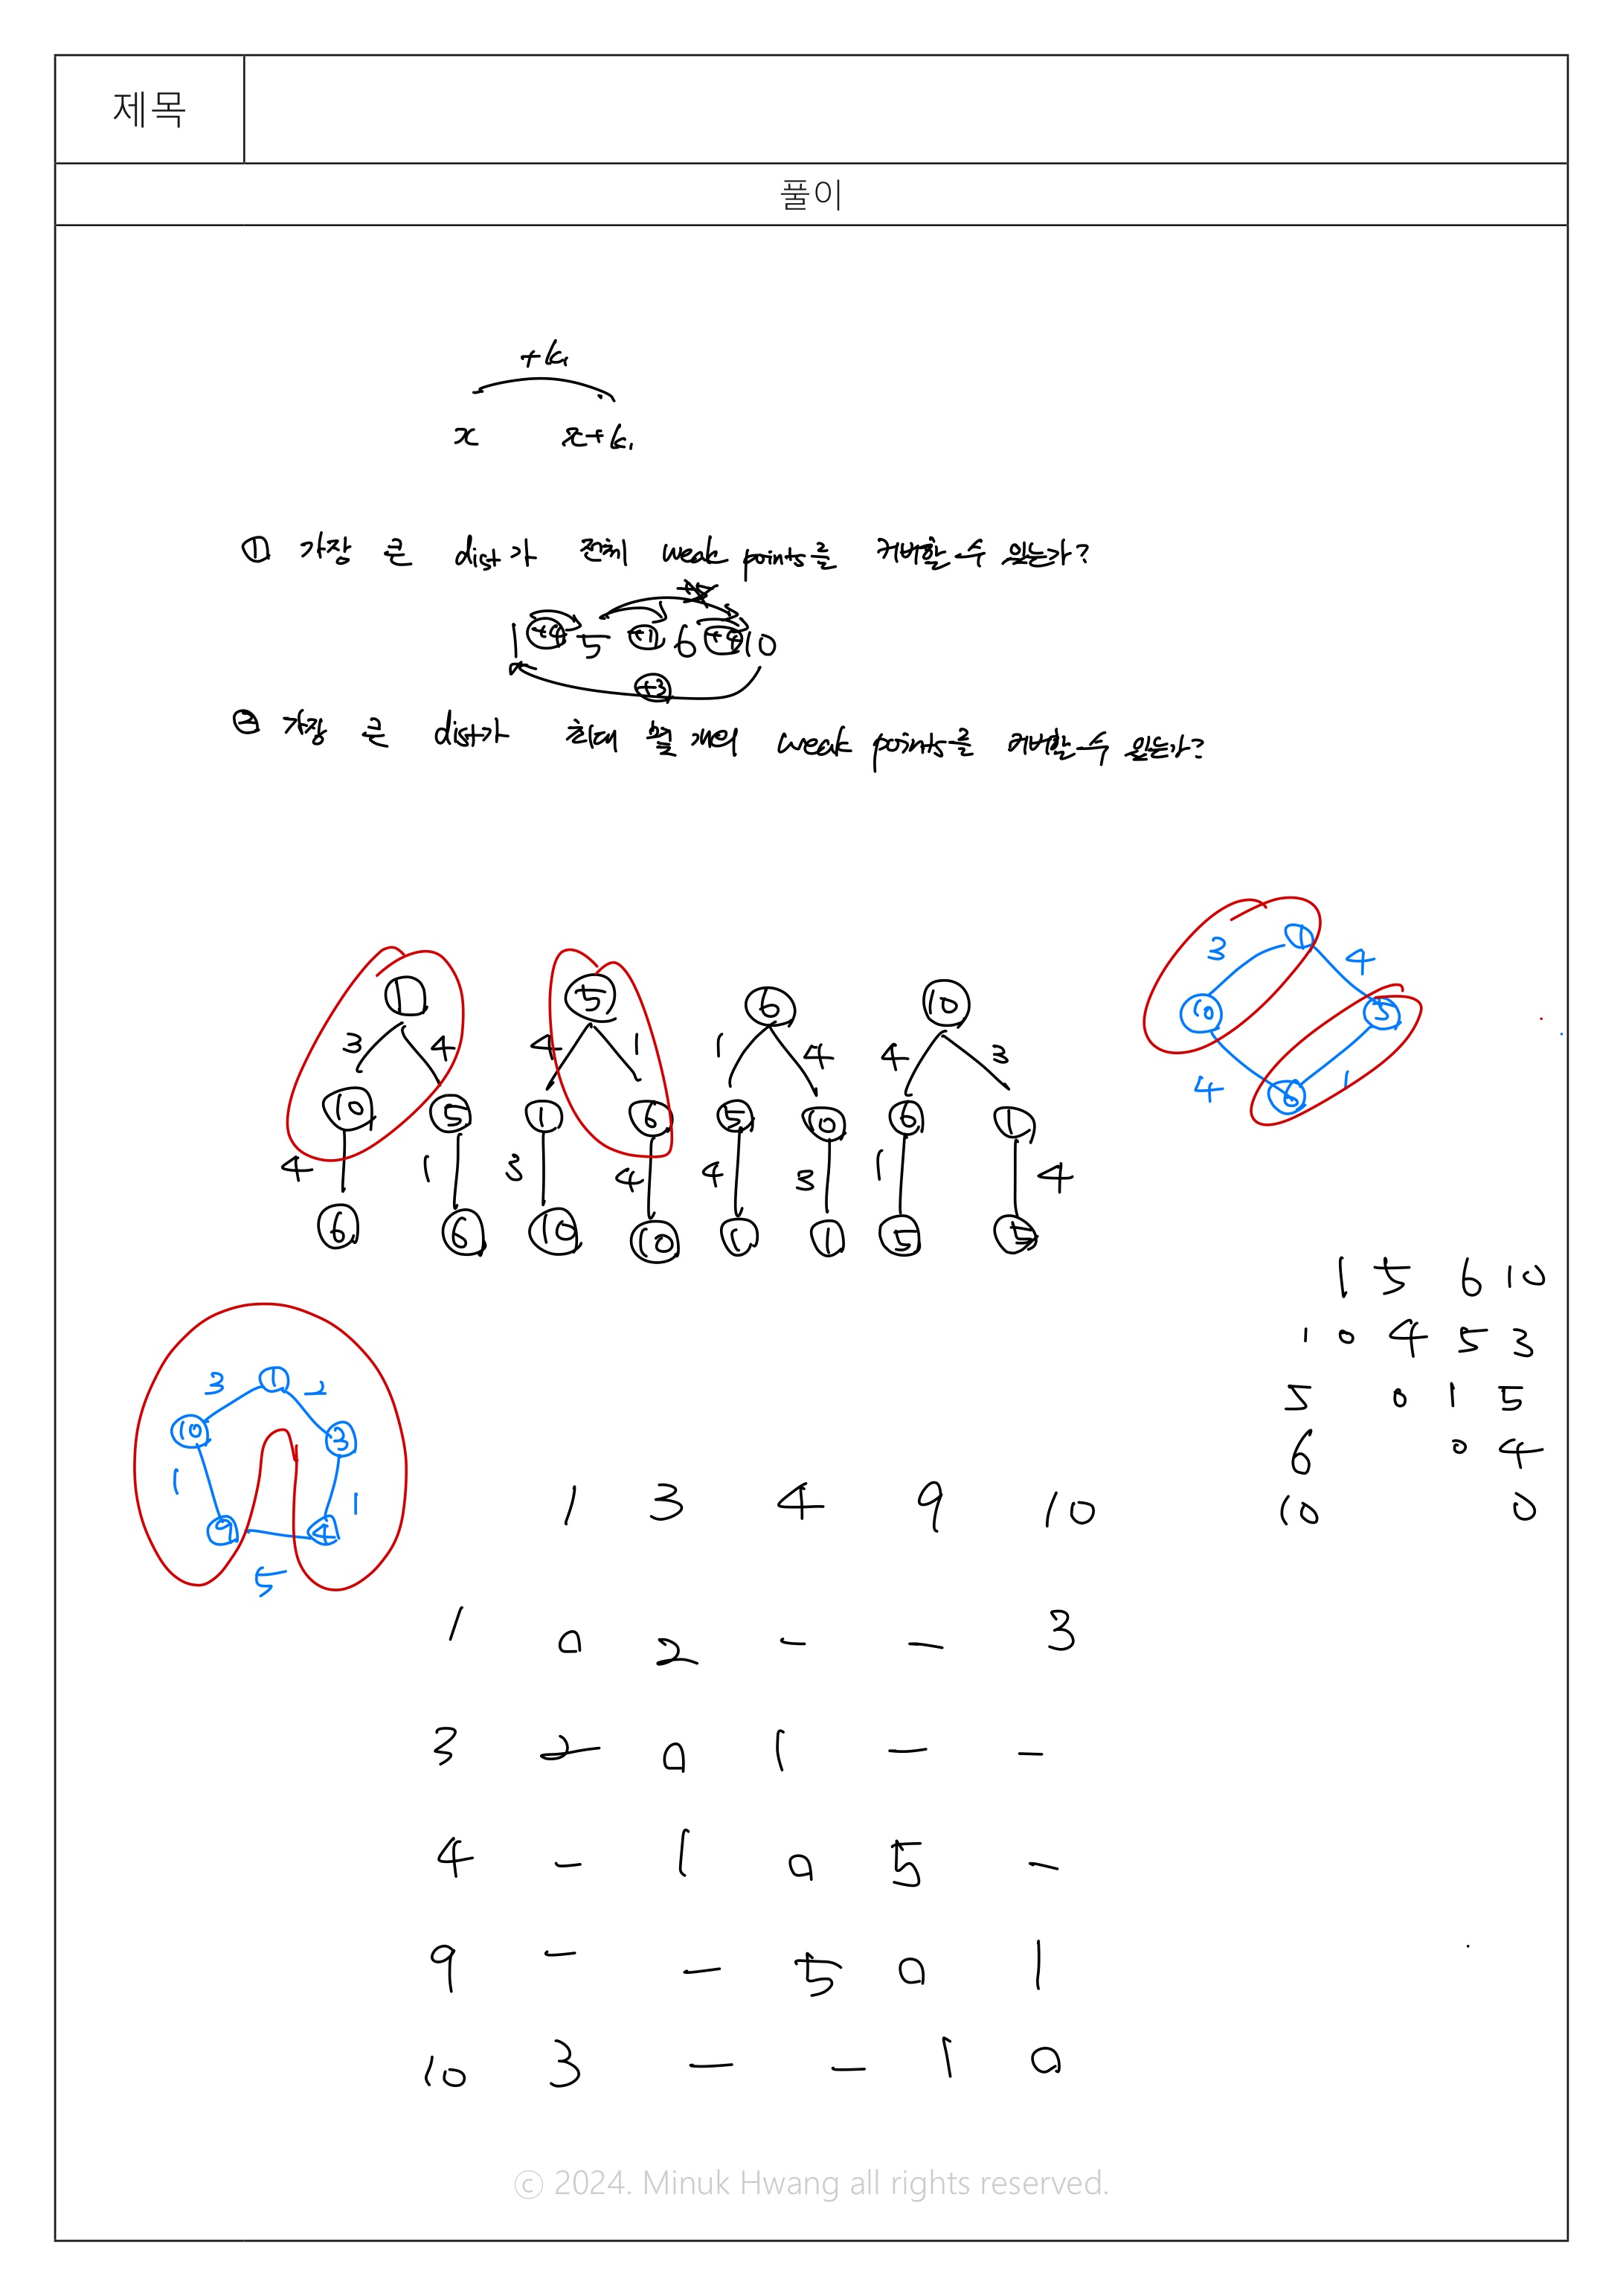 제목
풀이
+k₁
x x+k₁
① 가장 큰 dist가 전체 weak points를 커버할 수 있는가?
1 +4 5 +1 6 +4 10
+3
② 가장 큰 dist가 최대 몇 개의 weak points를 커버할 수 있는가?
1 5 6 10
3 4 4 1 1 4 4 3
10 5 1 6 5 10 6 1
4 1 3 4 4 3 1 4
6 6 10 10 1 1 5 5
1
3 4
10 5
4 1
6
1 5 6 10
1 0 4 5 3
5 0 1 5
6 0 4
10 0
1
3 2
10 3
1 1
9 4
5
1 3 4 9 10
1 0 2 - - 3
3 2 0 1 - -
4 - 1 0 5 -
9 - - 5 0 1
10 3 - - 1 0
ⓒ 2024. Minuk Hwang all rights reserved.